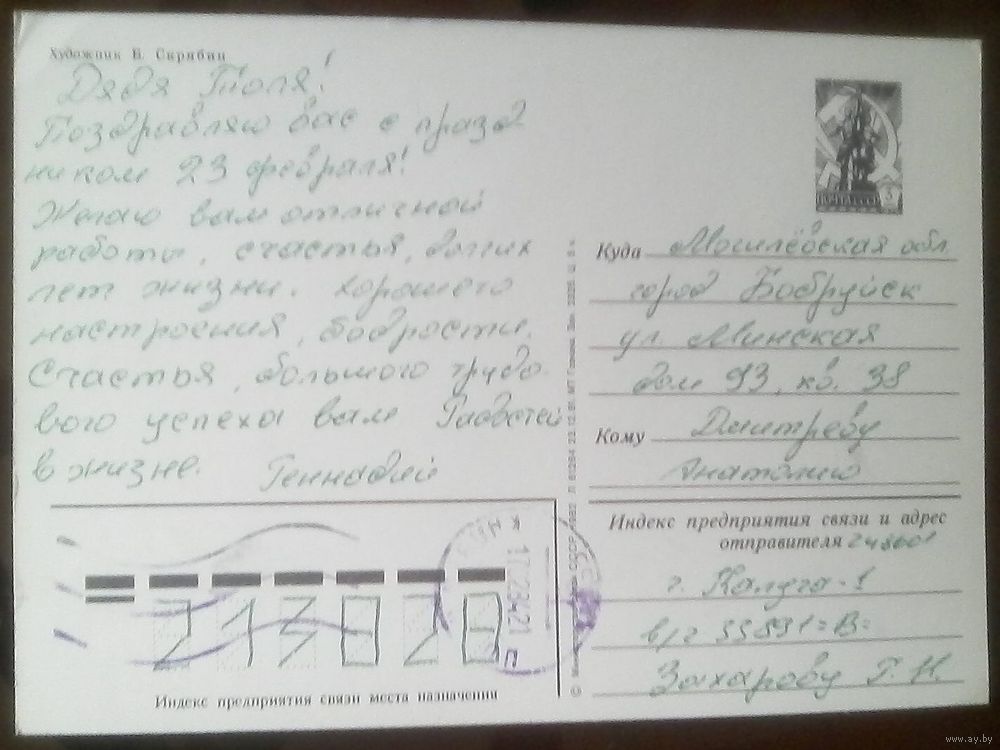 Художник В. Скрябин
Дядя Толя!
Поздравляю вас с празд
ником 23 февраля!
Желаю вам отличной
работы, счастья, долгих
лет жизни. хорошего
настроения, бодрости.
Счастья, большого трудо
вого успеха вам Радостей
в жизне.
Геннадий
ПОЧТА СССР
3
Куда Могилёвская обл
город Бобруйск
ул. Минская
дом 93, кв. 38
Кому Дмитреву
Анатолию
Индекс предприятия связи и адрес
отправителя 248601
г. Калуга-1
в/ч 33891 "В"
Захарову Г. Н.
213826
Индекс предприятия связи места назначения
www.ay.by